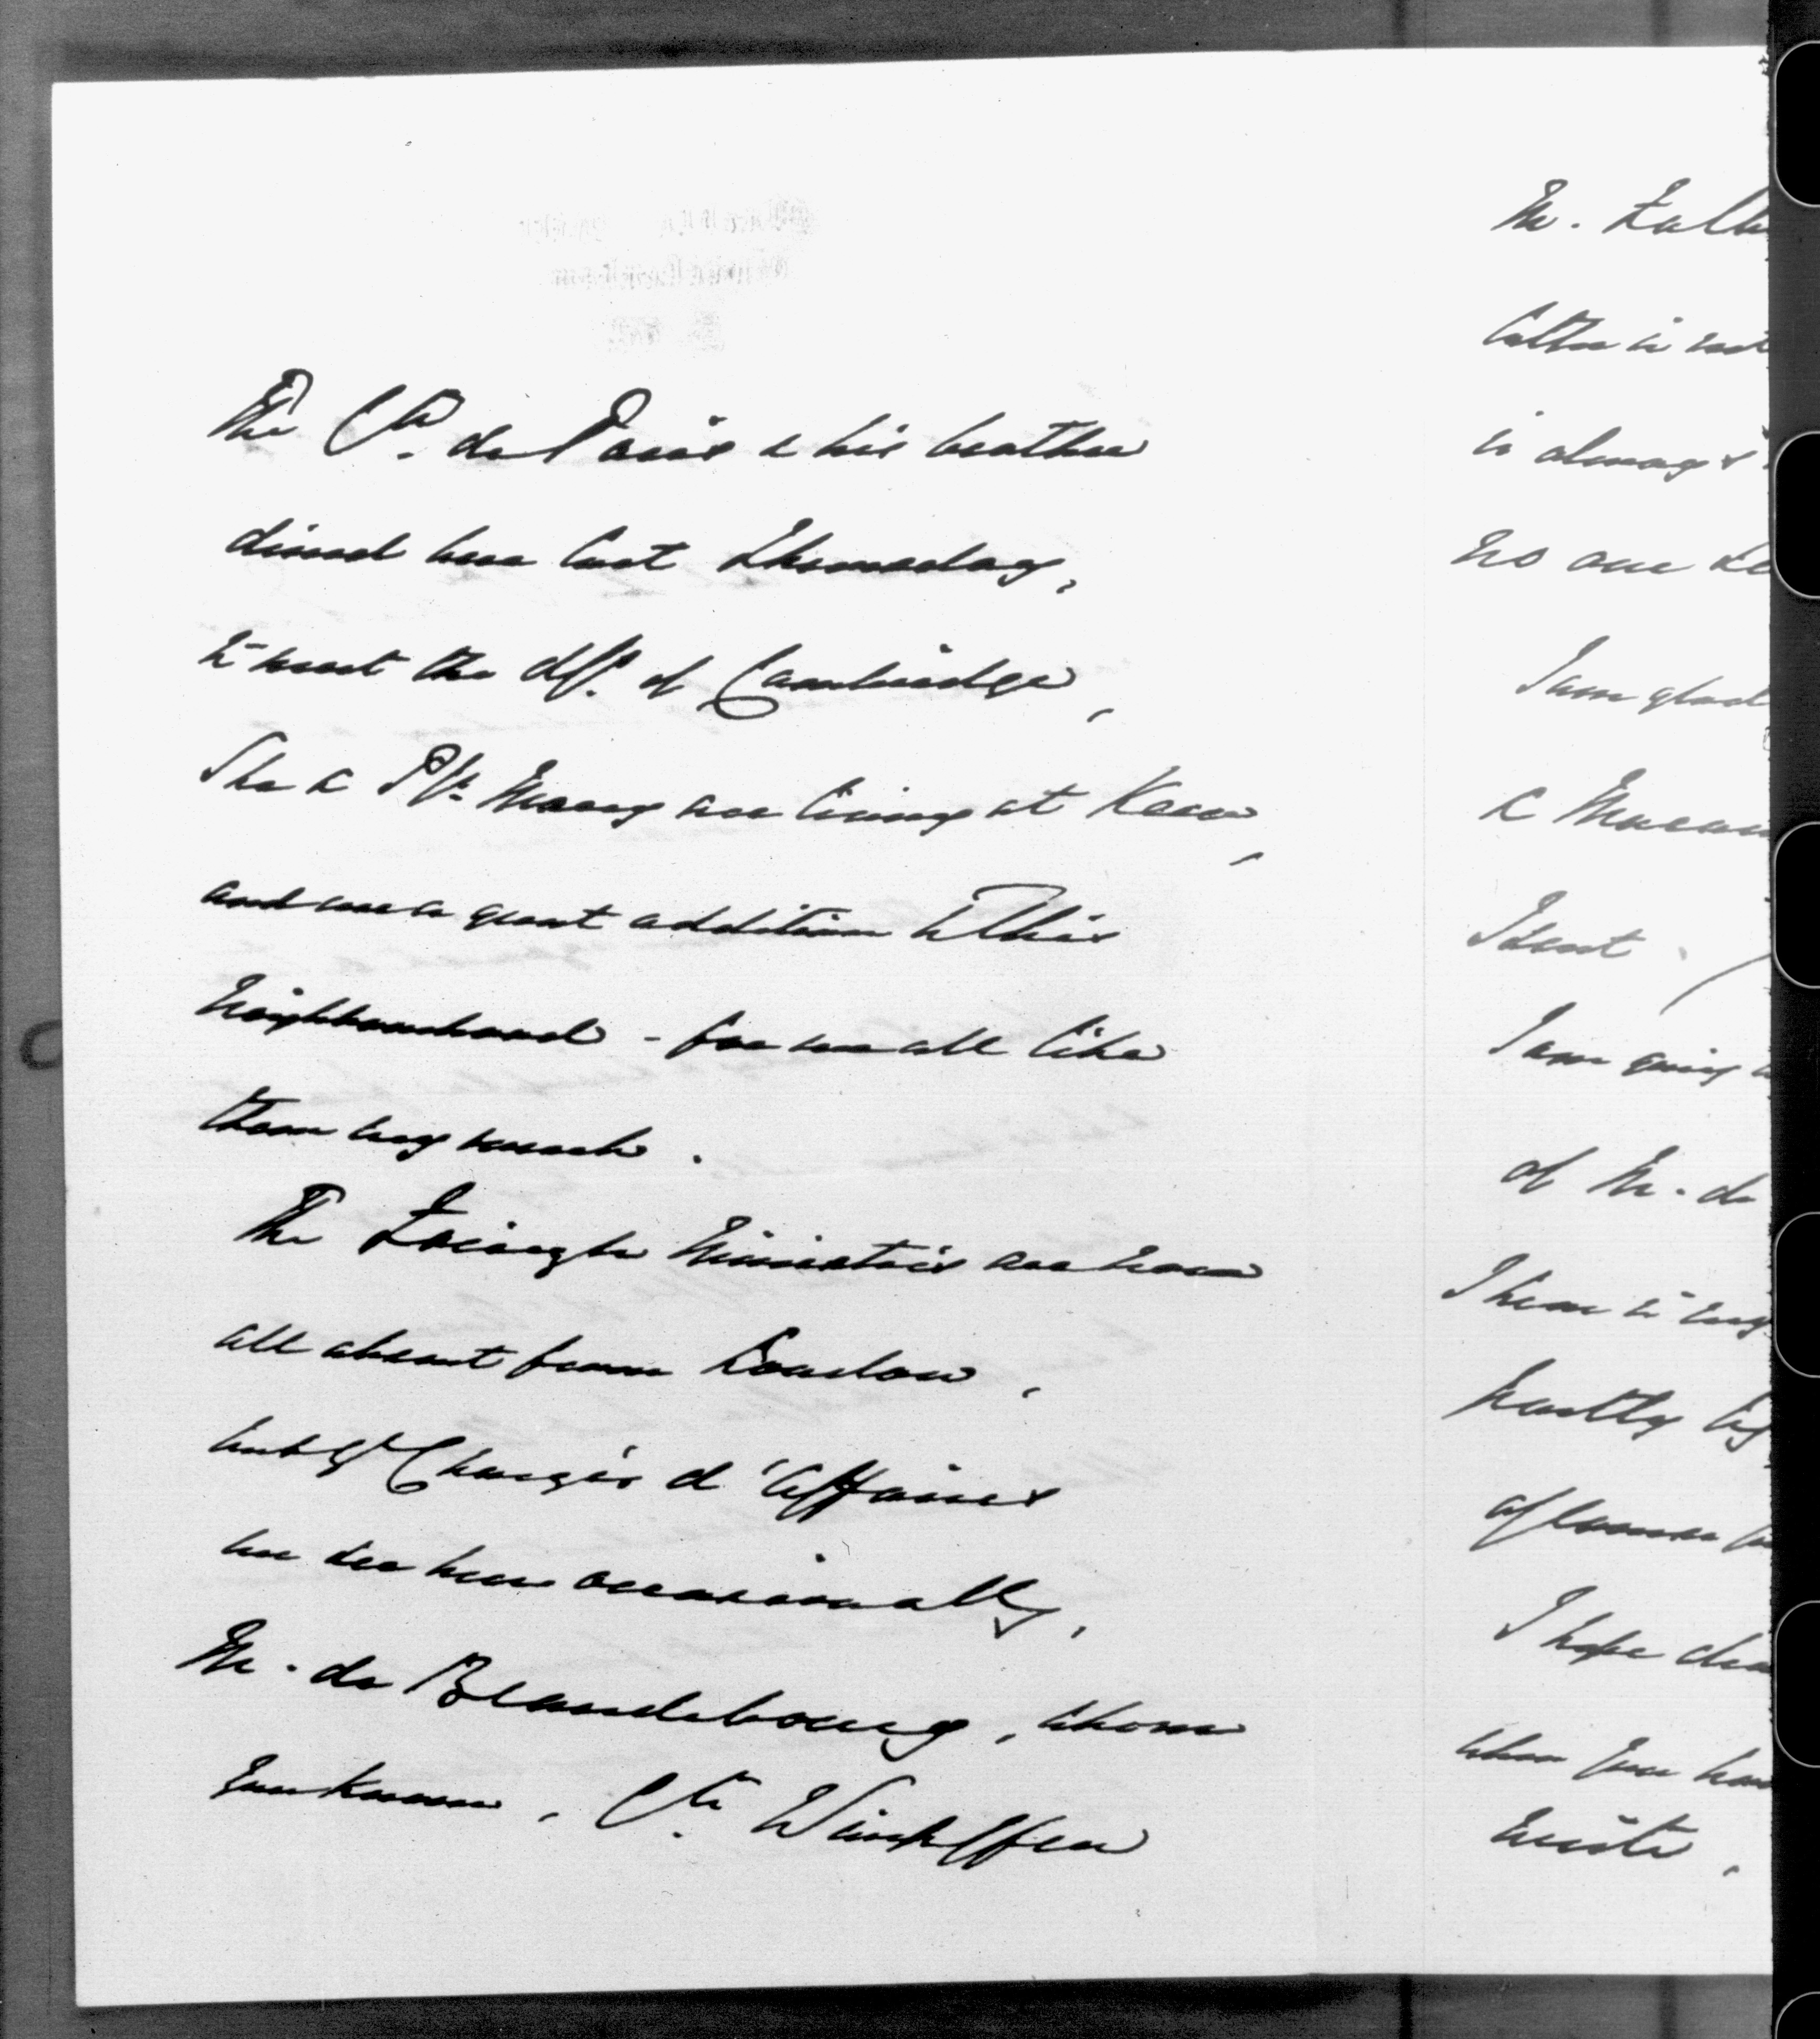 The Cte. de Paris & his brother
dined here last Thursday,
to meet the Dss. of Cambridge,
She & Pss. Mary are living at Kew,
and are a great addition to this
Neighbourhood - for we all like
them very much.
The Foreign Ministers are now
all absent from London,
but ye Chargés d'Affaires
we see here occasionally,
M. de Brandebourg, whom
you know, Cte. Wimpffen
M.
is always
no one
I am glad
&
I am going
of M. de
I have to
I hope
when you
write,